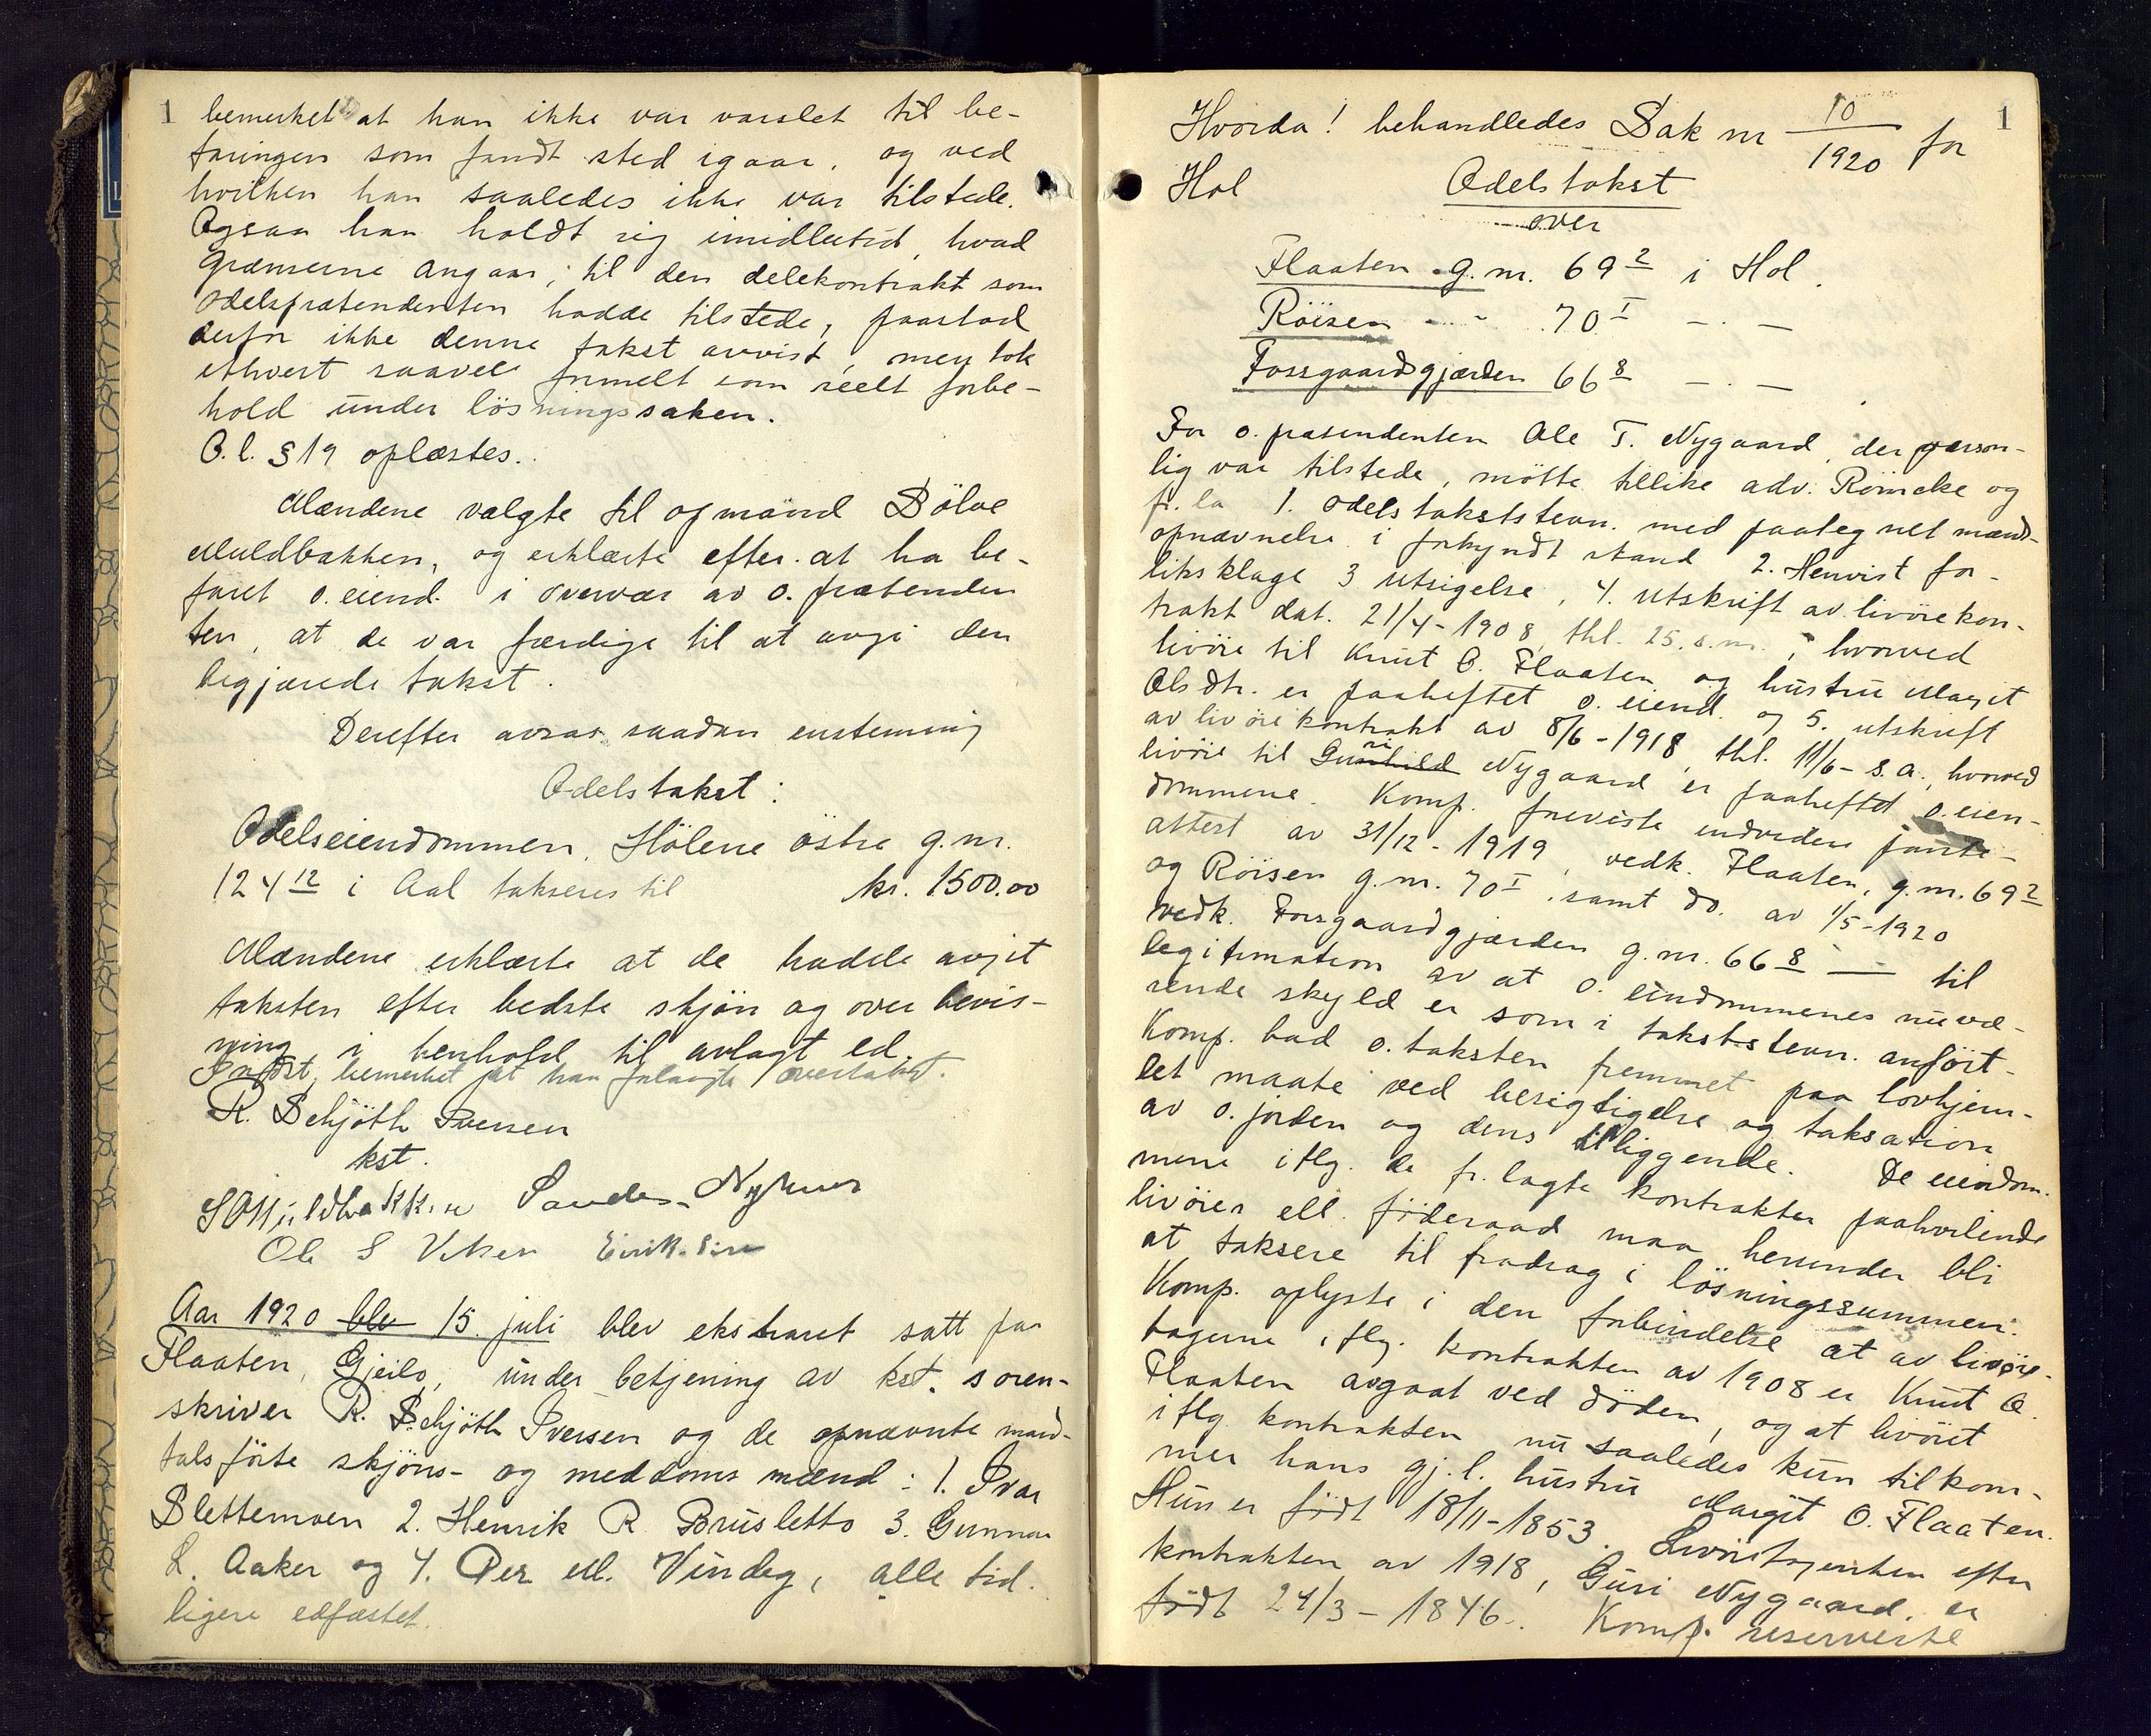 1
bemerket at han ikke var varslet til be-
faringen som fandt sted igaar, og ved
hvilken han saaledes ikke var tilstede.
Ogsaa han holdt sig imidlertid, hvad
grænserne angaar, til den delekontrakt som
odelsprætendenten hadde tilstede, paastod
derfor ikke denne takst avvist, men tok
ethvert saavel formelt som reelt forbe-
hold under lösningssaken.
O.l. § 19 oplæstes.
Mændene valgte til opmand Sölve
Muldbakken, og erklærte efter at ha be-
faret o.eiend. i overvær av o. prætenden
ten, at de var færdige til at avgi den
begjærede takst.
Derefter avsas saadan enstemmig
Odelstakst:
Odelseiendommen, Hölene östre g.nr.
124 12 i Aal takseres til kr. 1500.00
Mændene erklærte at de hadde avgit
taksten efter bedste skjön og over bevis-
ning i henhold til avlagt ed.
bemerket at han forlangte overtakst.
R. Schjöth Iversen
kst.
S O Muldbakken Sander Nyhus
Ole S Viken Eirik
Aar 1920 blev 15. juli blev ekstraret satt paa
Flaaten, Gjeilo, under betjening av kst. soren-
skriver R. Schjöth Iversen og de opnævnte mand-
talsförte skjöns- og meddomsmænd: 1. Ivar
Slettemoen 2. Henrik R. Brusletto 3. Gunnar
L. Aaker og 4. Per M. Vindeg, alle tid-
ligere edfæstet.
1
Hvorda! behandledes Sak nr 10/1920 for
Hol Odelstakst
over
Flaaten g.nr. 69 2 i Hol.
Röisen - - 70 I - . -
Fossgaardsgjærden 66 8 - . -
For o. prætendenten Ole T. Nygaard, der person-
lig var tilstede, mötte tillike adv. Röincke og
fr. la 1. odelstakststevn. med paategnet mænd-
opnævnelse i forkyndt stand 2. Henvist for-
liksklage 3 utsigelse, 4. utskrift av livörekon-
trakt dat. 21/4-1908, thl. 25.s.m., hvorved
livöre til Knut O. Flaaten og hustru Margit
Olsdtr. er paaheftet o. eiend. og 5. utskrift
av livörekontrakt av 8/6-1918, thl. 11/6- s.a., hvorved
livöre til Gunhild ri Nygaard er paaheftet o.eien-
dommene. Komp. foreviste endvidere pante-
attest av 31/12-1919, vedk. Flaaten, g.nr. 69 2
og Röisen g.nr. 70 I, samt do. av 1/5-1920
vedk. Fossgaardgjærden g.nr. 66 8 — til
legitimation av at o. eiendommenes nuvæ-
rende skyld er som i takststevn. anfört.
Komp. bad o. taksten fremmet paa lovhjem-
let maate ved besigtigelse og taksation
av o. jorden og dens tilliggende. De eiendom-
mene iflg. de fr. lagte kontrakter paahvilende
livöier ell. föderaad maa herunder bli
at taksere til fradrag i lösningssummen.
Komp. oplyste i den forbindelse at av livöie-
tagerne iflg. kontrakten av 1908 er Knut O.
Flaaten avgaat ved döden, og at livöiet
iflg kontrakten nu saaledes kun tilkom-
mer hans gj.l. hustru Margit O. Flaaten.
Hun er födt 18/11-1853. Livöistagersken efter
kontrakten av 1918, Guri Nygaard, er
födt 24/3-1846. Komp. reserverte